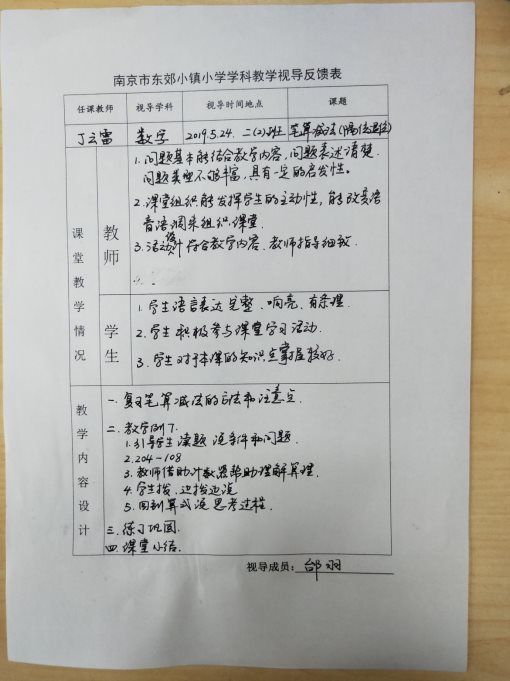 南京市东郊小镇小学学科教学视导反馈表
任课教师 视导学科 视导时间地点 课题
丁云雷 数学 2019.5.24. 二(2)班 笔算减法(隔位退位)
课堂教学情况
教师
1. 问题基本能结合教学内容,问题表述清楚.
问题类型不够丰富,具有一定的启发性。
2. 课堂组织能发挥学生的主动性,能改变语
音语调来组织课堂
3. 活动设计符合教学内容.教师指导细致.
学生
1. 学生语言表达完整、响亮、有条理.
2. 学生积极参与课堂学习活动.
3. 学生对于本课的知识点掌握较好.
教学内容设计
一. 复习笔算减法的方法和注意点.
二. 教学例7.
1. 引导学生读题 说条件和问题.
2. 204-108
3. 教师借助计数器帮助理解算理.
4. 学生拨、边拨边说
5. 回到算式说思考过程.
三. 练习巩固.
四. 课堂小结.
视导成员: 邰羽